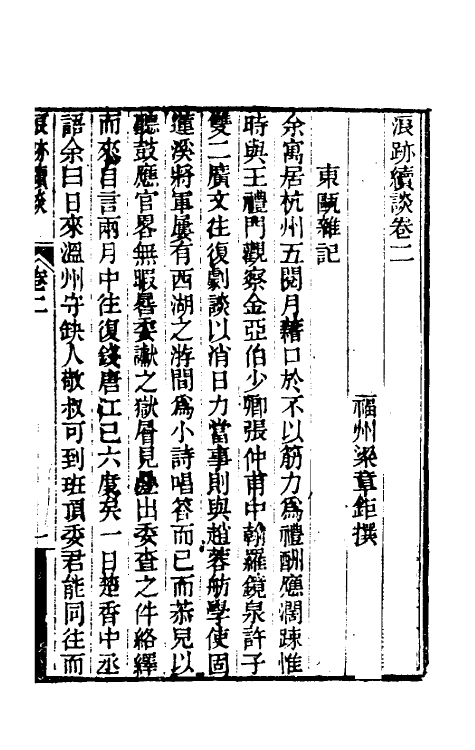 浪跡續談卷二
福州梁章鉅撰
東甌雜記
余寓居杭州五閱月藉口於不以筋力爲禮酬應濶踈惟
時與王禮門觀察金亞伯少卿張仲甫中翰羅鏡泉許子
雙二廣文往復劇談以消日力當事則與趙蓉舫學使固
蓮溪將軍屢有西湖之游間爲小詩唱答而已而恭兒以
聽鼓應官畧無暇晷委讞之獄層見疊出委查之件絡繹
而來自言兩月中往復錢唐江已六度矣一日楚香中丞
語余曰日來溫州守缺人敬叔可到班頂委君能同往而
浪跡續談
卷二
一